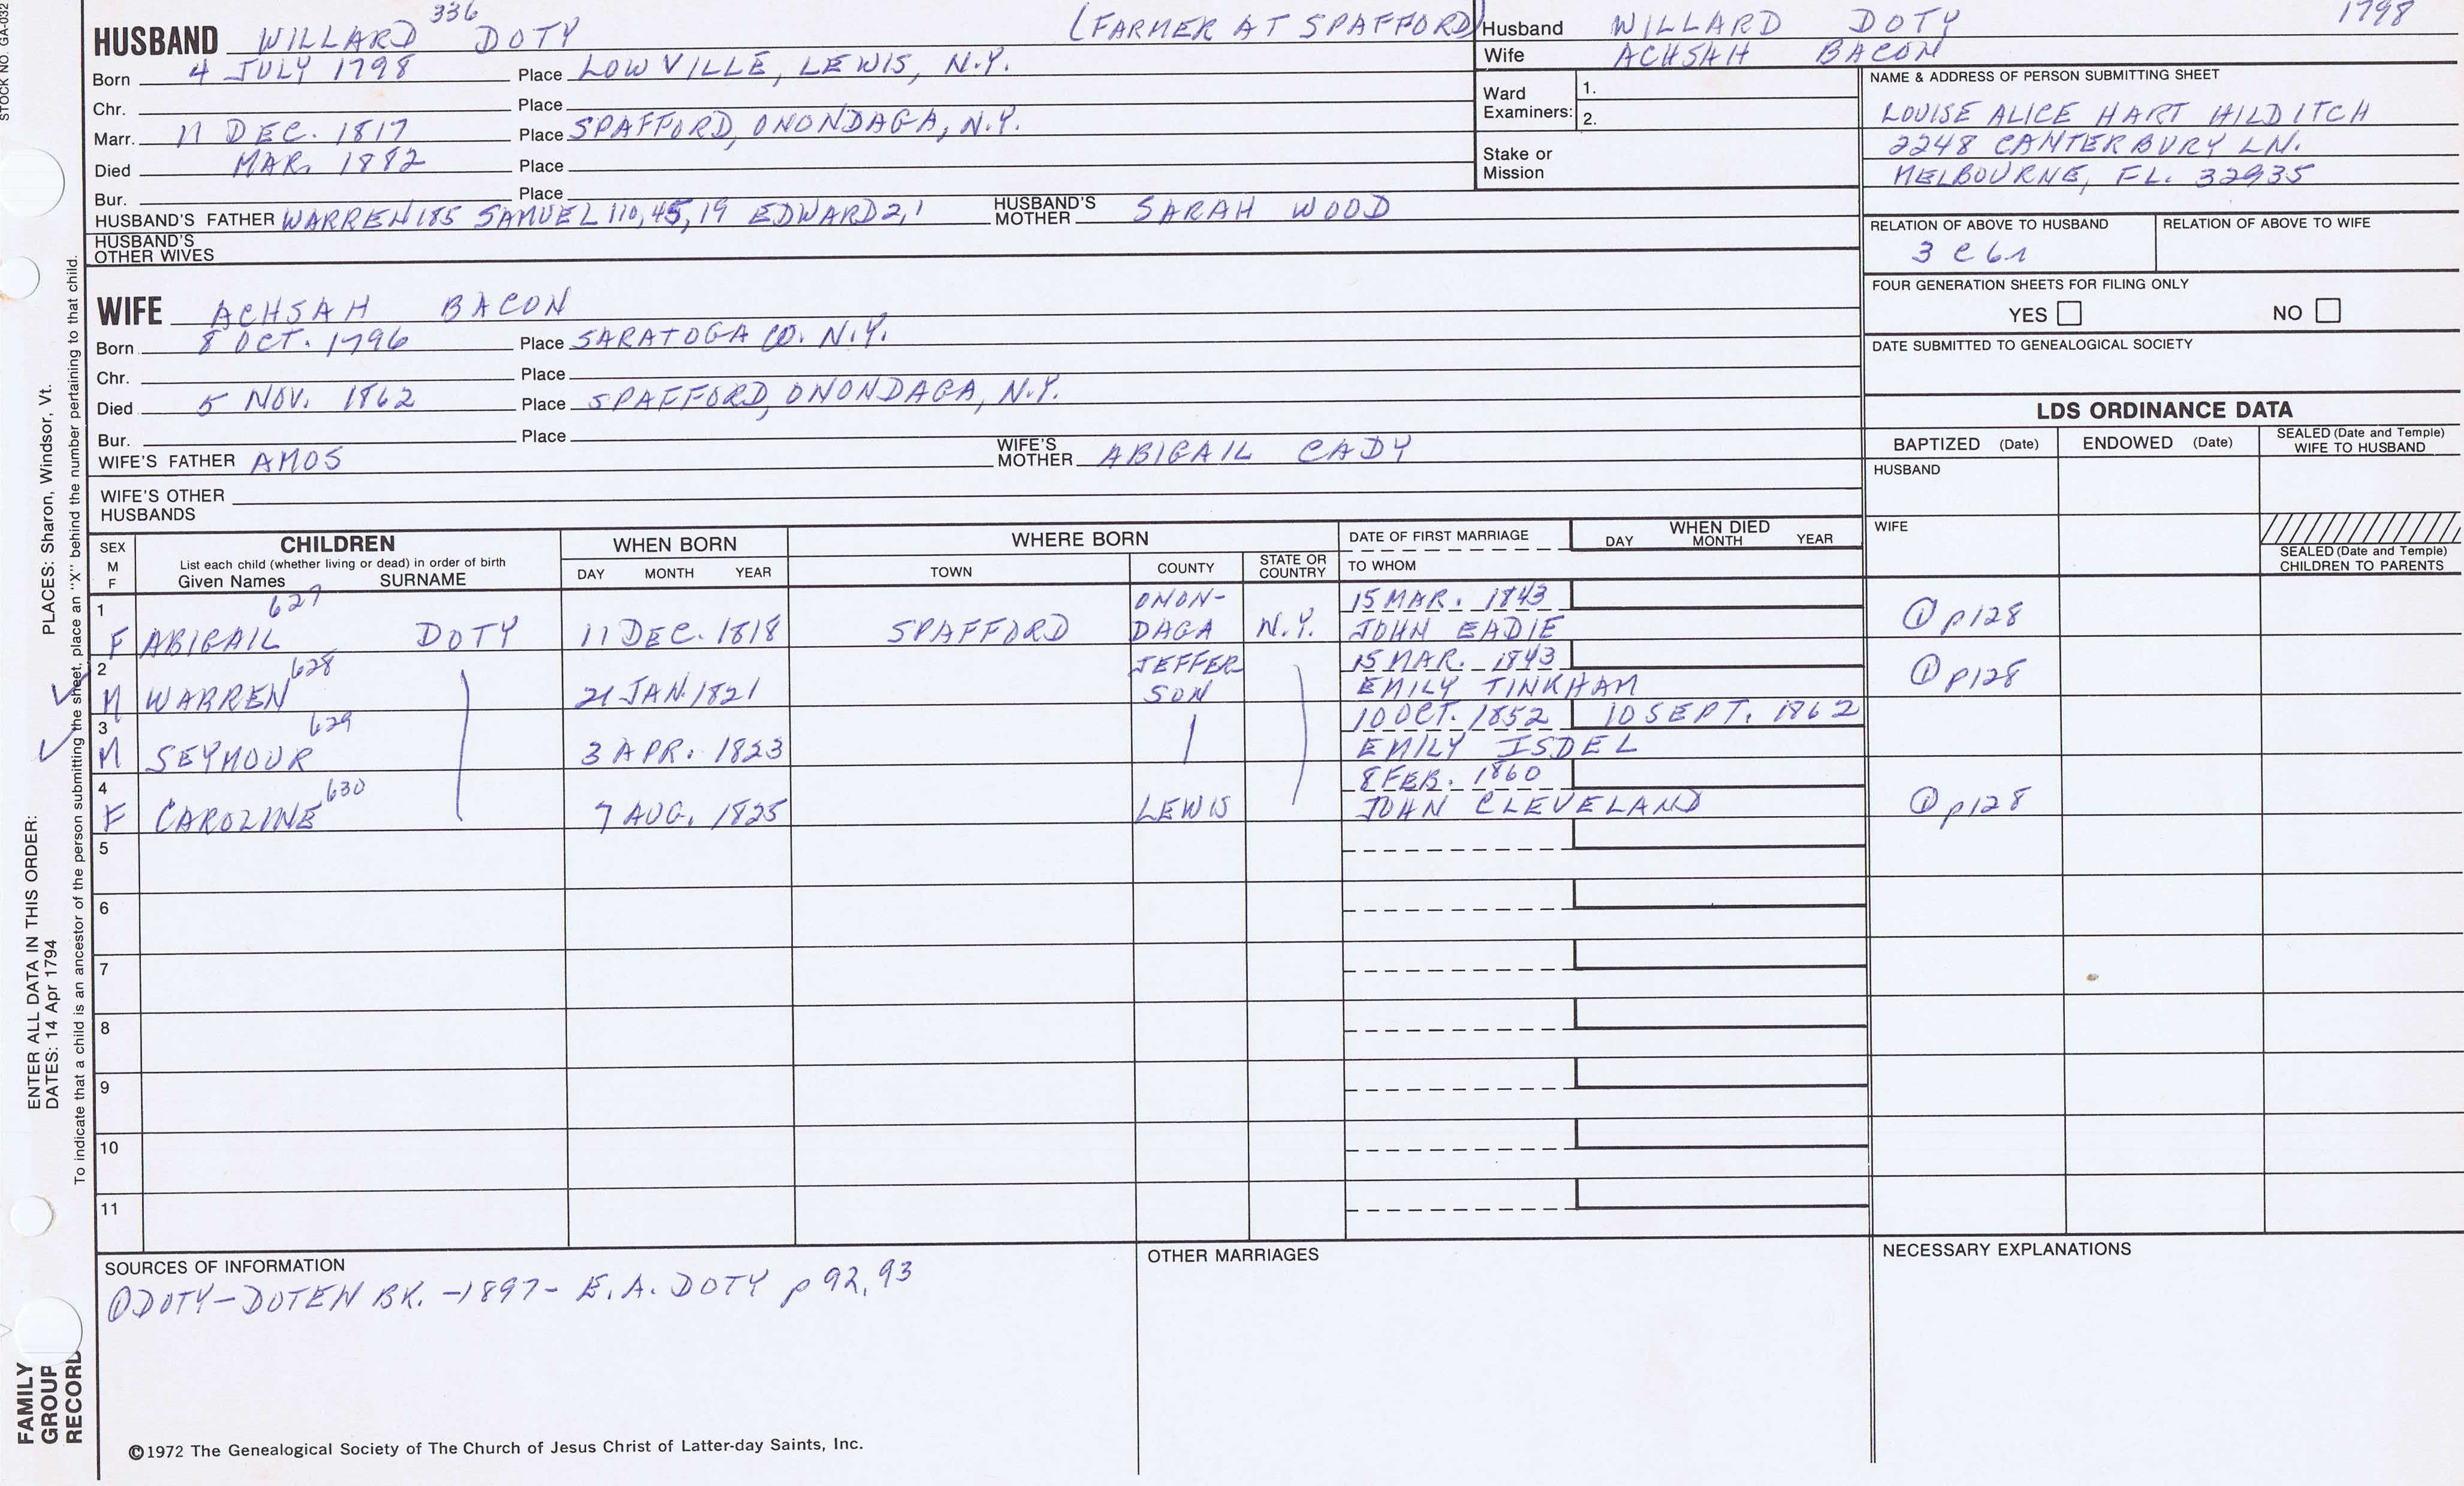 STOCK NO. GA-032
HUSBAND WILLARD 336 DOTY (FARMER AT SPAFFORD)
Born 4 JULY 1798 Place LOWVILLE, LEWIS, N.Y.
Chr. Place
Marr. 11 DEC. 1817 Place SPAFFORD, ONONDAGA, N.Y.
Died MAR. 1882 Place
Bur. Place
HUSBAND'S FATHER WARREN 185 SAMUEL 110, 45, 19 EDWARD 2, 1 HUSBAND'S MOTHER SARAH WOOD
HUSBAND'S OTHER WIVES
Husband WILLARD DOTY 1798
Wife ACHSAH BACON
Ward Examiners: 1.
2.
Stake or Mission
NAME & ADDRESS OF PERSON SUBMITTING SHEET
LOUISE ALICE HART HILDITCH
2248 CANTERBURY LN.
MELBOURNE, FL. 32935
RELATION OF ABOVE TO HUSBAND RELATION OF ABOVE TO WIFE
3 C 6 r
FOUR GENERATION SHEETS FOR FILING ONLY
YES NO
DATE SUBMITTED TO GENEALOGICAL SOCIETY
WIFE ACHSAH BACON
Born 8 OCT. 1796 Place SARATOGA CO. N.Y.
Chr. Place
Died 5 NOV. 1862 Place SPAFFORD, ONONDAGA, N.Y.
Bur. Place
WIFE'S FATHER AMOS WIFE'S MOTHER ABIGAIL CADY
WIFE'S OTHER HUSBANDS
LDS ORDINANCE DATA
BAPTIZED (Date) ENDOWED (Date) SEALED (Date and Temple) WIFE TO HUSBAND
HUSBAND
WIFE
SEALED (Date and Temple) CHILDREN TO PARENTS
SEX M F CHILDREN WHEN BORN WHERE BORN DATE OF FIRST MARRIAGE WHEN DIED
List each child (whether living or dead) in order of birth
Given Names SURNAME DAY MONTH YEAR TOWN COUNTY STATE OR COUNTRY TO WHOM DAY MONTH YEAR
1 627 ONON- 15 MAR. 1843
F ABIGAIL DOTY 11 DEC. 1818 SPAFFORD DAGA N.Y. JOHN EADIE ① p128
2 628 JEFFER 15 MAR. 1843
M WARREN 21 JAN 1821 SON EMILY TINKHAM ① p128
3 629 10 OCT. 1852 10 SEPT. 1862
M SEYMOUR 3 APR. 1823 EMILY ISDEL
4 630 8 FEB. 1860
F CAROLINE 7 AUG. 1825 LEWIS JOHN CLEVELAND ① p128
5
6
7
8
9
10
11
SOURCES OF INFORMATION OTHER MARRIAGES NECESSARY EXPLANATIONS
① DOTY-DOTEN BK. -1897- E.A. DOTY p 92, 93
©1972 The Genealogical Society of The Church of Jesus Christ of Latter-day Saints, Inc.
ENTER ALL DATA IN THIS ORDER:
DATES: 14 Apr 1794 PLACES: Sharon, Windsor, Vt.
To indicate that a child is an ancestor of the person submitting the sheet, place an "X" behind the number pertaining to that child.
FAMILY
GROUP
RECORD